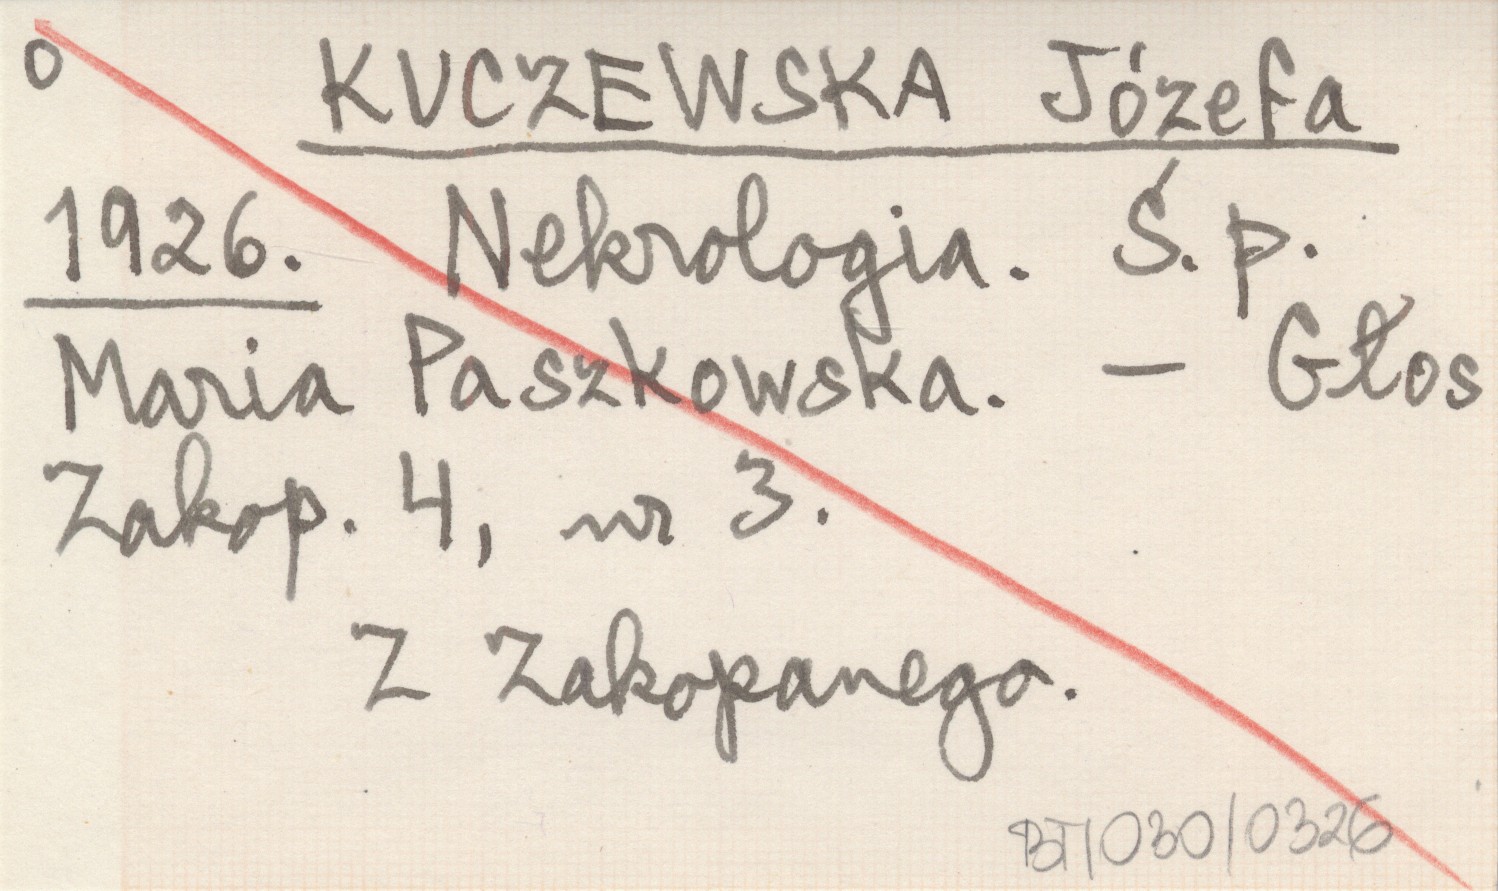 O
KUCZEWSKA Józefa
1926. Nekrologia. Ś.p.
Maria Paszkowska. – Głos
Zakop. 4, nr 3.
Z Zakopanego.
BT/030/0326